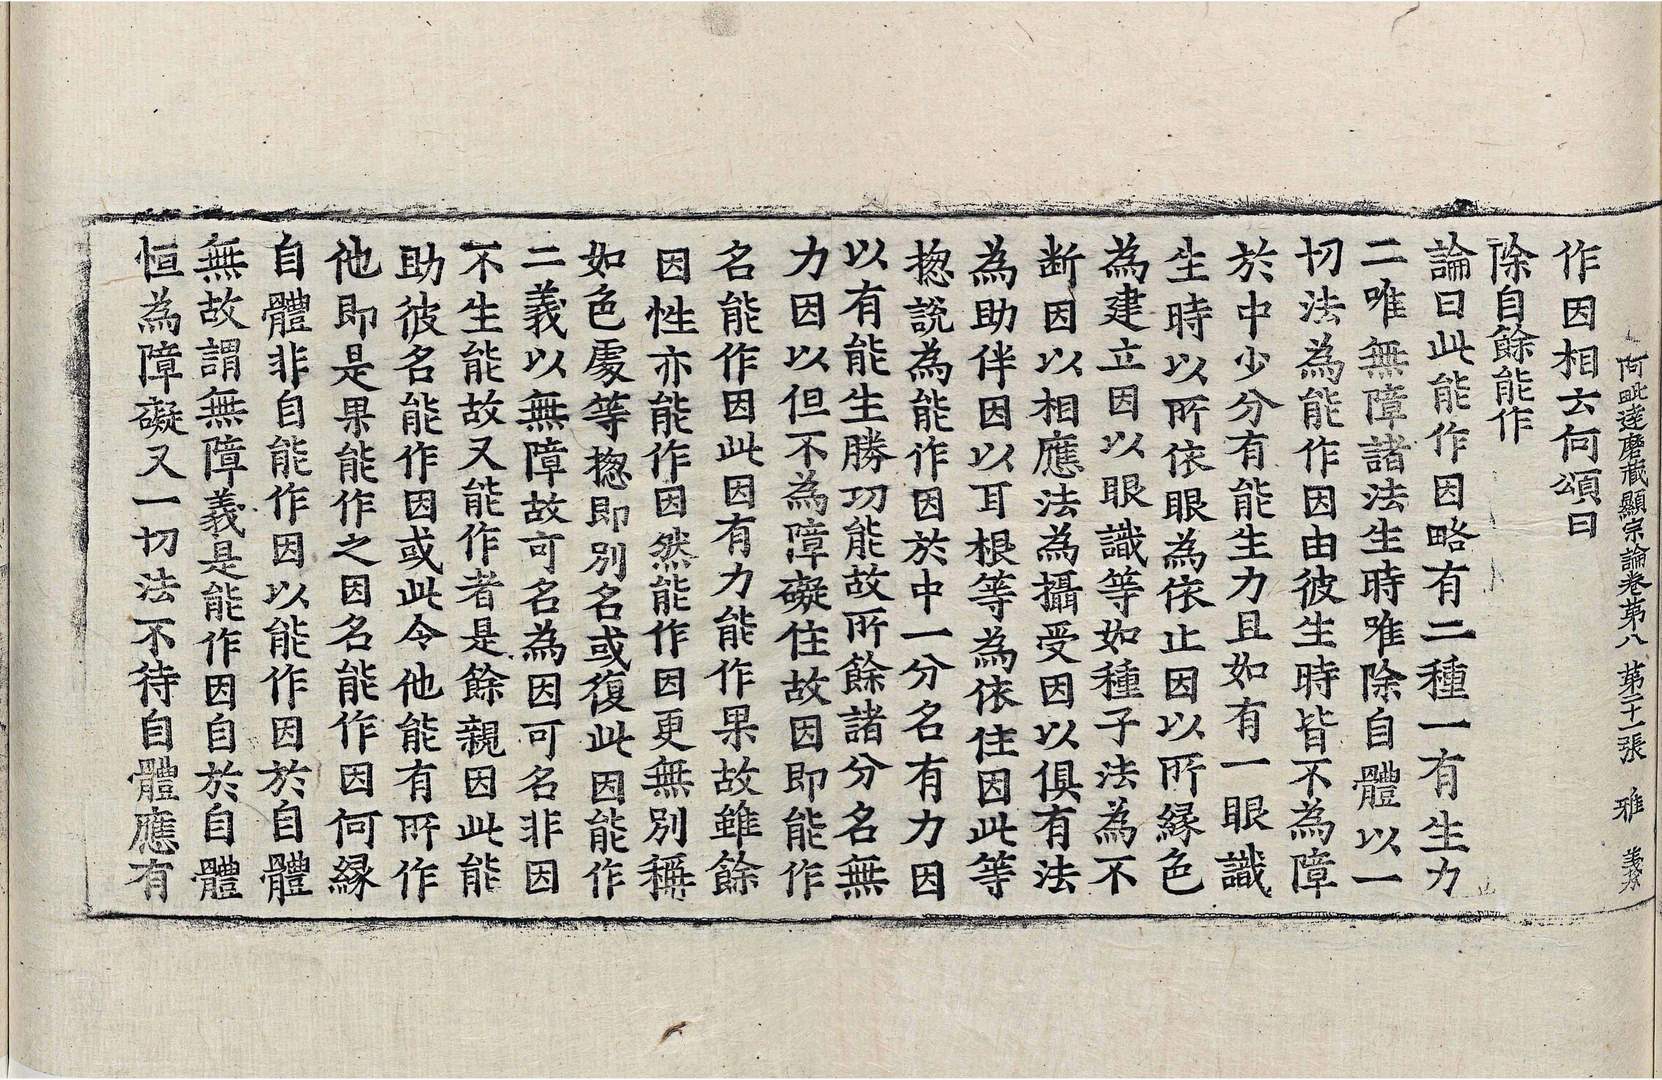 阿毗達磨藏顯宗論卷第八 第二十一張 雅 義
作因相云何頌曰
除自餘能作
論曰此能作因略有二種一有生力
二唯無障諸法生時唯除自體以一
切法為能作因由彼生時皆不為障
於中少分有能生力且如有一眼識
生時以所依眼為依止因以所緣色
為建立因以眼識等如種子法為不
断因以相應法為攝受因以俱有法
為助伴因以耳根等為依住因此等
揔說為能作因於中一分名有力因
以有能生勝功能故所餘諸分名無
力因以但不為障礙住故因即能作
名能作因此因有力能作果故雖餘
因性亦能作因然能作因更無別稱
如色處等揔即別名或復此因能作
二義以無障故可名為因可名非因
不生能故又能作者是餘親因此能
助彼名能作因或此令他能有所作
他即是果能作之因名能作因何緣
自體非自能作因以能作因於自體
無故謂無障義是能作因自於自體
恒為障礙又一切法不待自體應有